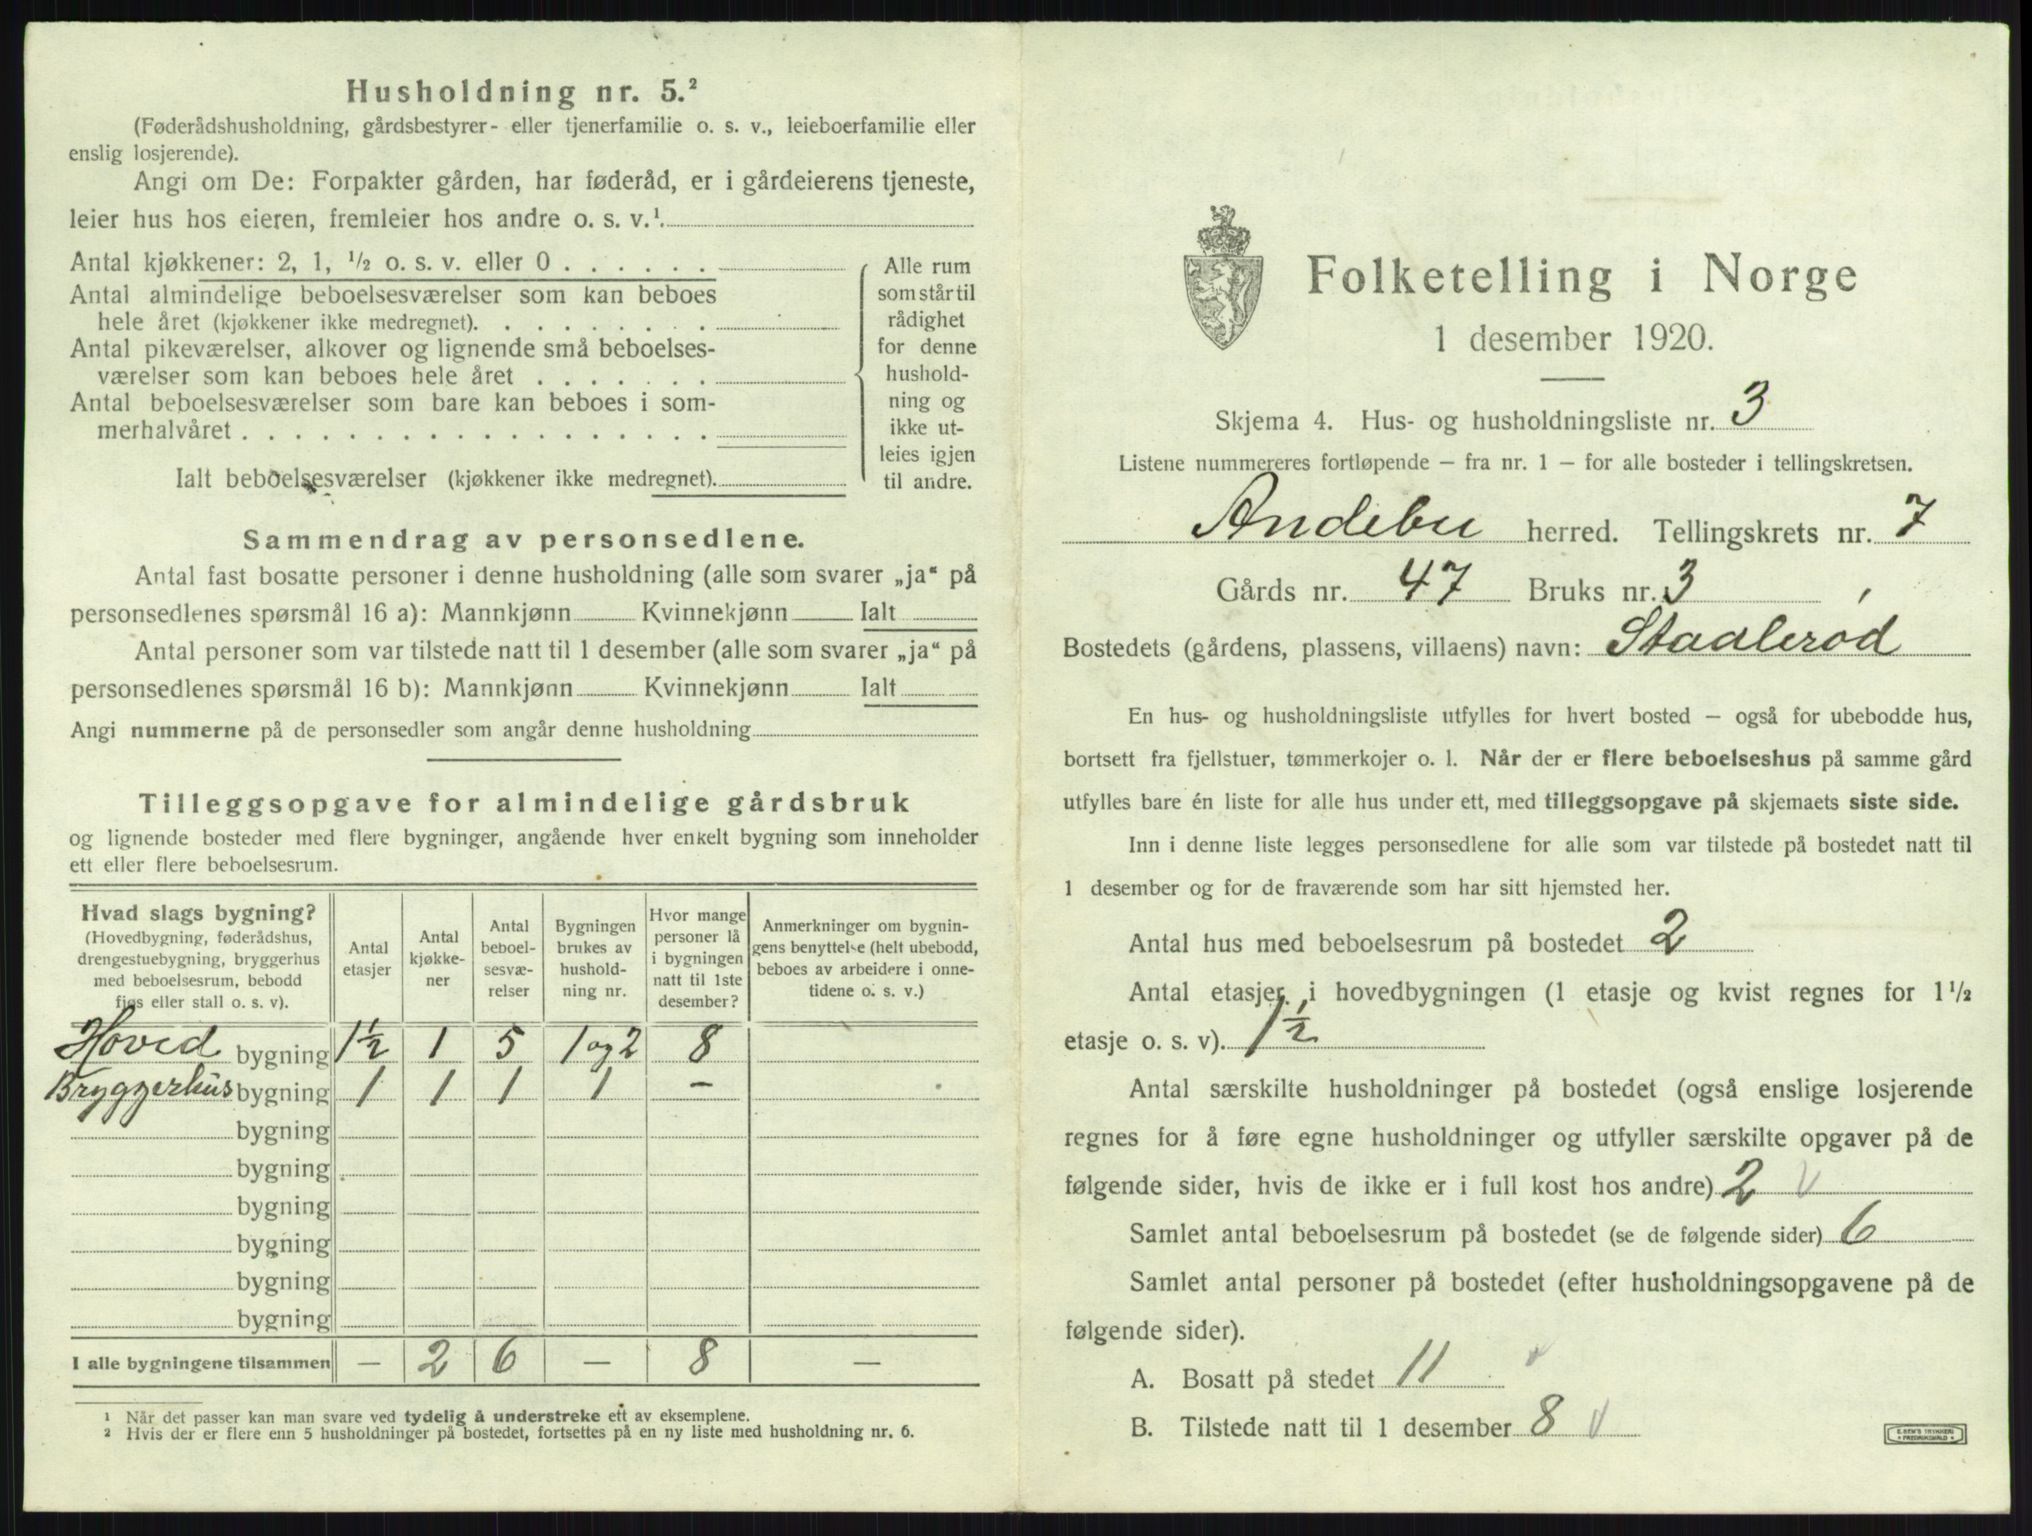 Husholdning nr. 5.²
(Føderådshusholdning, gårdsbestyrer- eller tjenerfamilie o. s. v., leieboerfamilie eller
enslig losjerende).
Angi om De: Forpakter gården, har føderåd, er i gårdeierens tjeneste,
leier hus hos eieren, fremleier hos andre o. s. v.¹.
Antal kjøkkener: 2, 1, ½ o. s. v. eller 0 . . . . . .
Antal almindelige beboelsesværelser som kan beboes
hele året (kjøkkener ikke medregnet). . . . . . . . .
Antal pikeværelser, alkover og lignende små beboelses-
værelser som kan beboes hele året . . . . . . .
Antal beboelsesværelser som bare kan beboes i som-
merhalvåret . . . . . . . . . . . . . . . . . .
Ialt beboelsesværelser (kjøkkener ikke medregnet).
Alle rum
som står til
rådighet
for denne
hushold-
ning og
ikke ut-
leies igjen
til andre.
Sammendrag av personsedlene.
Antal fast bosatte personer i denne husholdning (alle som svarer „ja“ på
personsedlenes spørsmål 16 a): Mannkjønn Kvinnekjønn Ialt
Antal personer som var tilstede natt til 1 desember (alle som svarer „ja“ på
personsedlenes spørsmål 16 b): Mannkjønn Kvinnekjønn Ialt
Angi nummerne på de personsedler som angår denne husholdning
Tilleggsopgave for almindelige gårdsbruk
og lignende bosteder med flere bygninger, angående hver enkelt bygning som inneholder
ett eller flere beboelsesrum.
Hvad slags bygning?
(Hovedbygning, føderådshus,
drengestuebygning, bryggerhus
med beboelsesrum, bebodd
fjøs eller stall o. s. v).
Antal
etasjer
Antal
kjøkke-
ner
Antal
beboel-
sesvæ-
relser
Bygningen
brukes av
hushold-
ning nr.
Hvor mange
personer lå
i bygningen
natt til 1ste
desember?
Anmerkninger om bygnin-
gens benyttelse (helt ubebodd,
beboes av arbeidere i onne-
tidene o. s. v.)
Hoved bygning 1½ 1 5 1 og 2 8
Bryggerhus bygning 1 1 1 1 –
bygning
bygning
bygning
bygning
bygning
bygning
I alle bygningene tilsammen — 2 6 — 8 —
¹ Når det passer kan man svare ved tydelig å understreke ett av eksemplene.
² Hvis der er flere enn 5 husholdninger på bostedet, fortsettes på en ny liste med husholdning nr. 6.
Folketelling i Norge
1 desember 1920.
Skjema 4. Hus- og husholdningsliste nr. 3
Listene nummereres fortløpende – fra nr. 1 – for alle bosteder i tellingskretsen.
Andebu herred. Tellingskrets nr. 7
Gårds nr. 47 Bruks nr. 3
Bostedets (gårdens, plassens, villaens) navn: Staalerød
En hus- og husholdningsliste utfylles for hvert bosted – også for ubebodde hus,
bortsett fra fjellstuer, tømmerkojer o. l. Når der er flere beboelseshus på samme gård
utfylles bare én liste for alle hus under ett, med tilleggsopgave på skjemaets siste side.
Inn i denne liste legges personsedlene for alle som var tilstede på bostedet natt til
1 desember og for de fraværende som har sitt hjemsted her.
Antal hus med beboelsesrum på bostedet 2
Antal etasjer i hovedbygningen (1 etasje og kvist regnes for 1½
etasje o. s. v). 1½
Antal særskilte husholdninger på bostedet (også enslige losjerende
regnes for å føre egne husholdninger og utfyller særskilte opgaver på de
følgende sider, hvis de ikke er i full kost hos andre) 2 v
Samlet antal beboelsesrum på bostedet (se de følgende sider) 6
Samlet antal personer på bostedet (efter husholdningsopgavene på de
følgende sider).
A. Bosatt på stedet 11 v
B. Tilstede natt til 1 desember 8 v
E. SEM'S TRYKKERI
* FREDRIKSHALD *